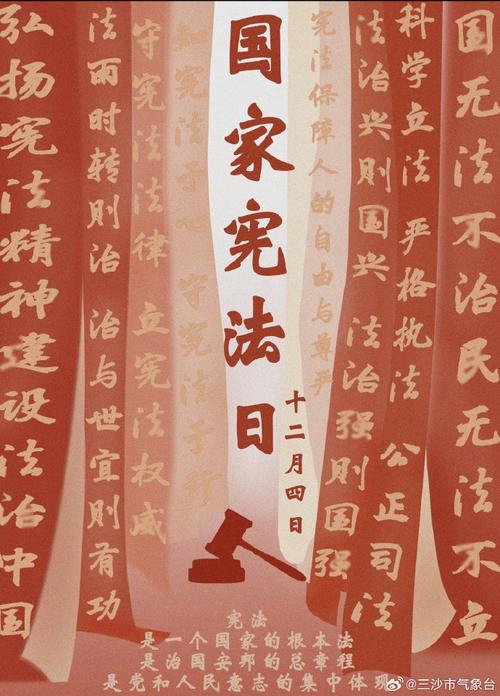 弘扬宪法精神建设法治中国
法雨时转则治 治与世宜则有功
守宪法法律 立宪法权威
知宪法于心 守宪法于行
国家宪法日
十二月四日
宪法保障人的自由与尊严
法治兴则国兴 法治强则国强
科学立法 严格执法 公正司法
国无法不治民无法不立
宪法
是一个国家的根本法
是治国安邦的总章程
是党和人民意志的集中体现
@三沙市气象台